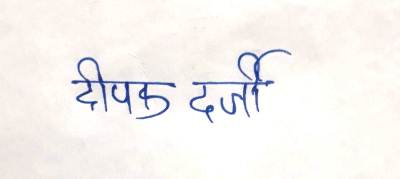 दीपक दर्जी